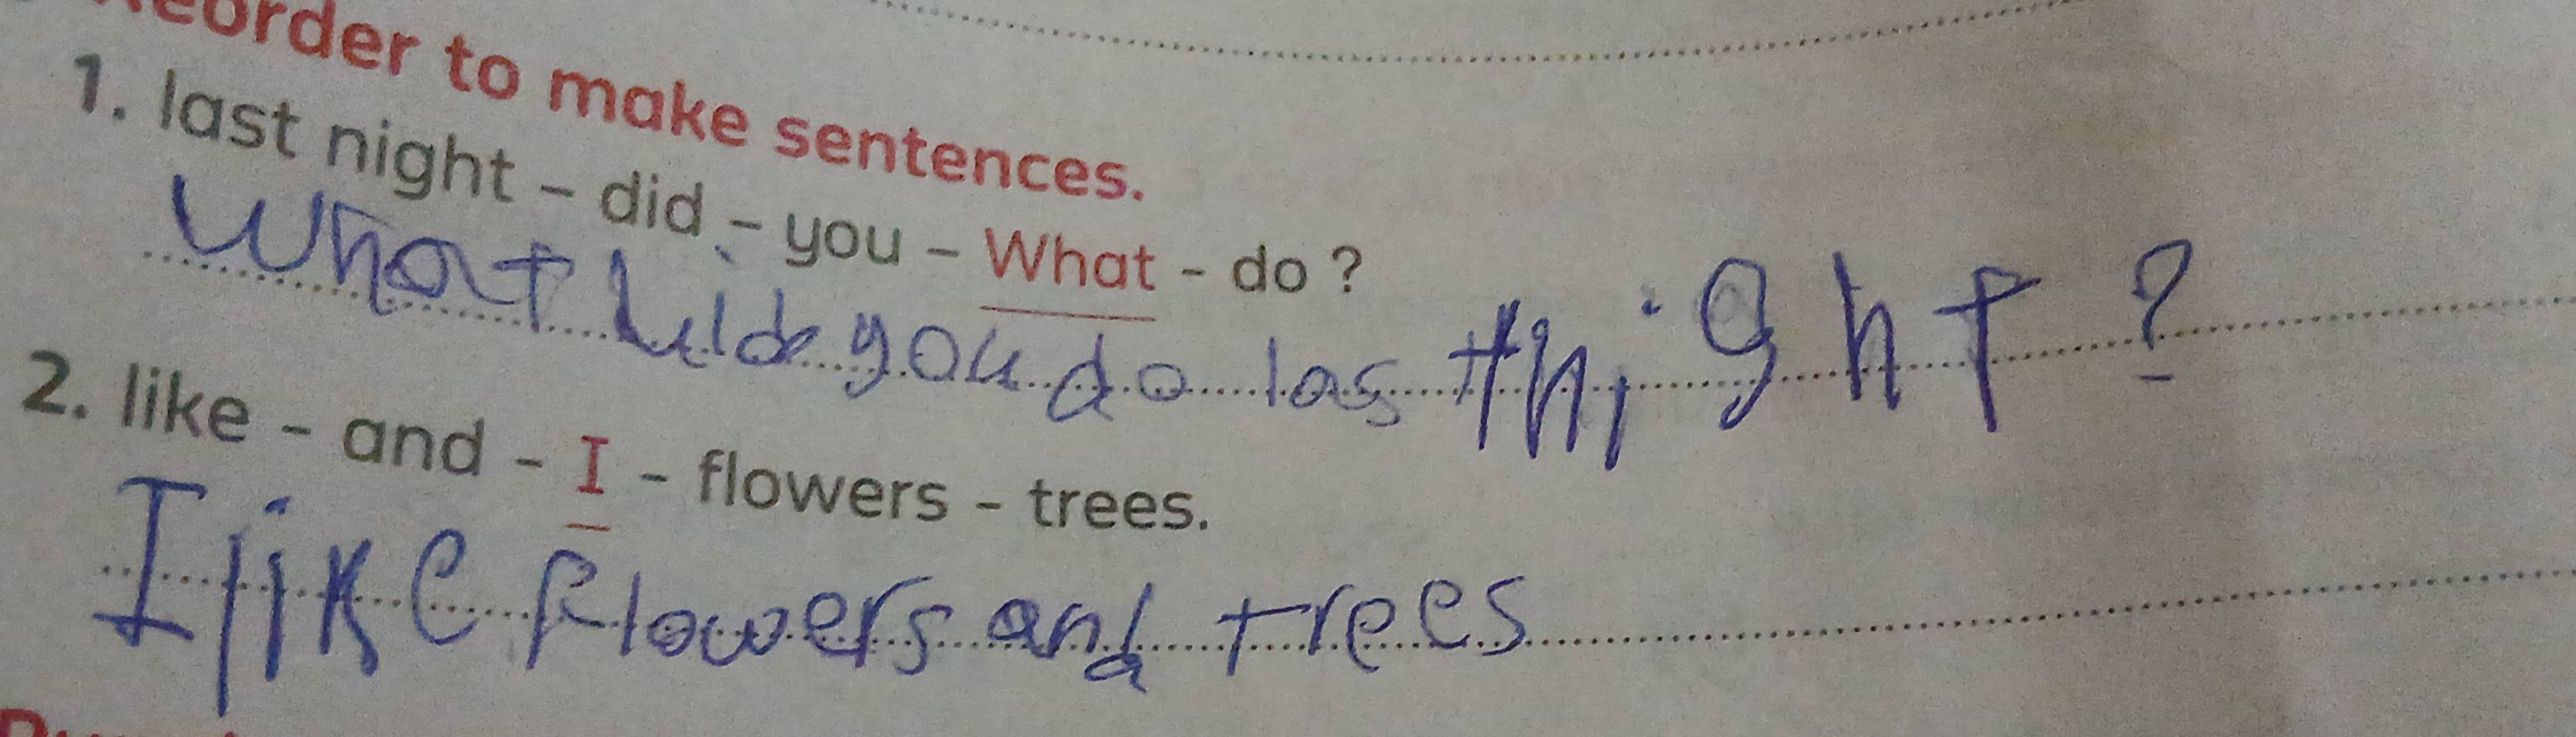 eorder to make sentences.
1. last night – did – you – What - do ?
What did you do last night ?
2. like - and - I - flowers - trees.
I like flowers and trees